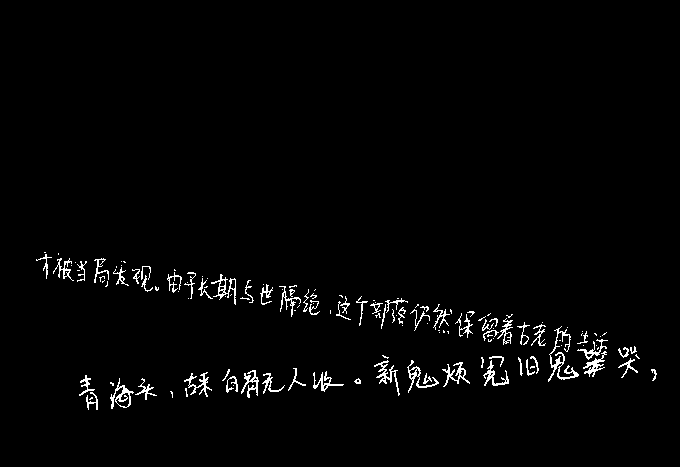 才被当局发现。由于长期与世隔绝,这个部落仍然保留着古老的生活
青海头,古来白骨无人收。新鬼烦冤旧鬼哭,